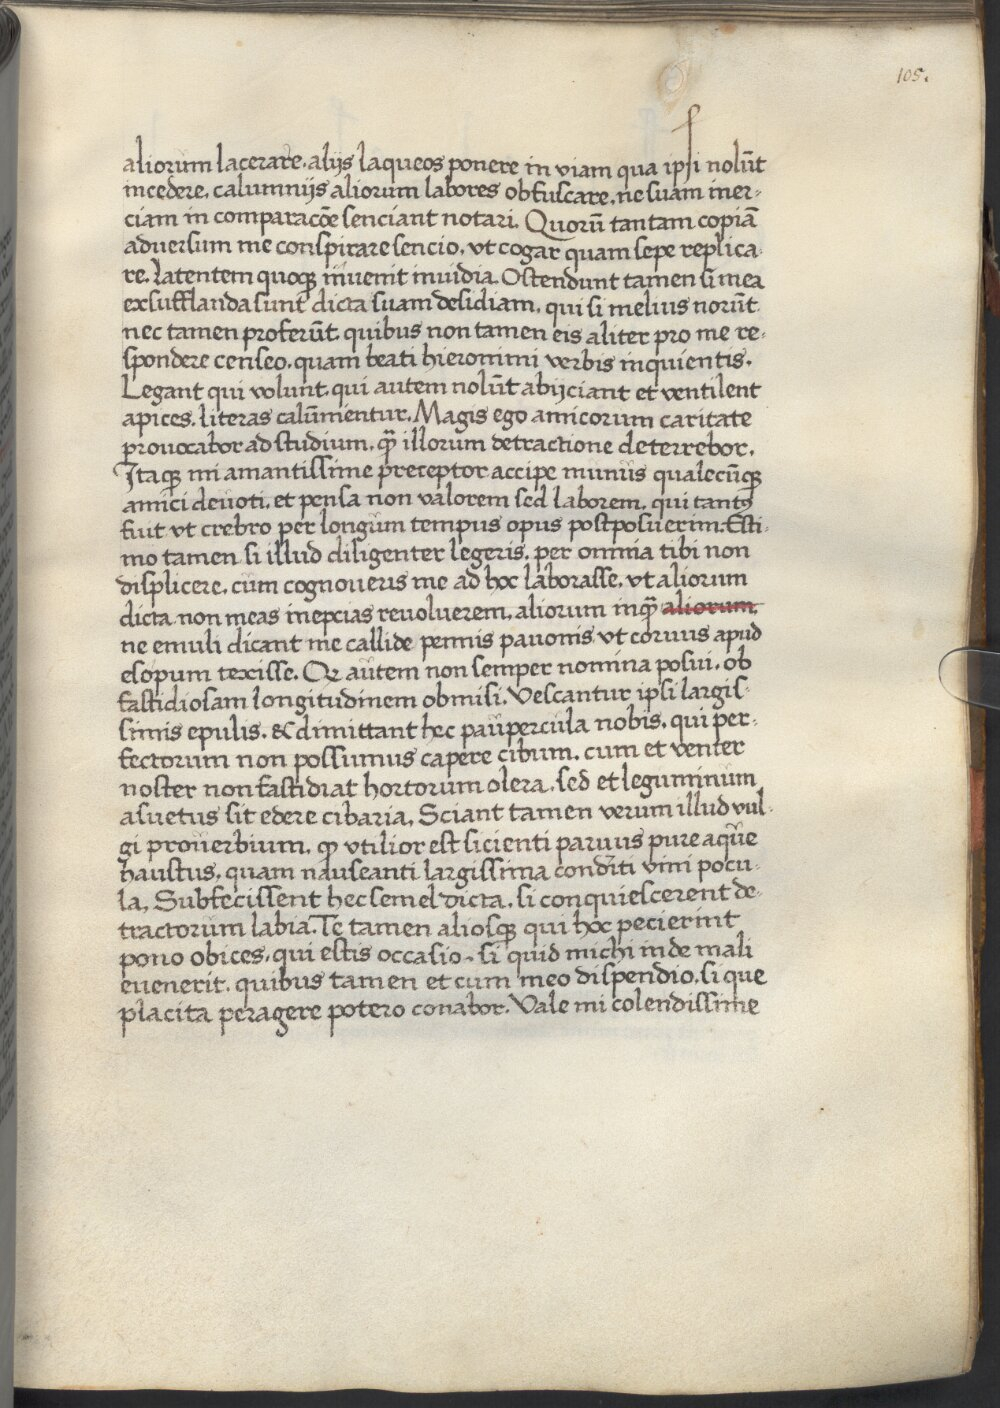 105.
aliorum lacerare. alijs laqueos ponere in viam qua ipsi nolūt
incedere. calumnijs aliorum labores obfuscare. ne suam iner-
ciam in comparacōe senciant notari. Quorū tantam copiā
adversum me conspirare sencio. vt cogar quam sepe replica-
re. Latentem quoqꝫ invenit invidia. Ostendunt tamen si mea
exsufflanda sunt dicta suam desidiam. qui si melius norūt
nec tamen proferūt. quibus non tamen eis aliter pro me re-
spondere censeo. quam beati hieronimi verbis inquientis.
Legant qui volunt. qui autem nolūt abijciant et ventilent
apices. literas calūmientur. Magis ego amicorum caritate
provocabor ad studium. qꝫ̄ illorum detractione deterrebor.
Itaqꝫ mi amantissime preceptor accipe munus qualecūqꝫ
amici devoti. et pensa non valorem sed laborem. qui tantꝰ
fuit vt crebro per longum tempus opus postposuerim. Esti-
mo tamen si illud diligenter legeris. per omnia tibi non
displicere. cum cognoveris me ad hoc laborasse. vt aliorum
dicta non meas inepcias revolverem. aliorum inqꝫ̄ aliorum.
ne emuli dicant me callide pennis pavonis vt corvus apud
esopum texisse. Qꝫ autem non semper nomina posui. ob
fastidiosam longitudinem obmisi. Vescantur ipsi largis-
simis epulis. & dimittant hec paupercula nobis. qui per-
fectorum non possumus capere cibum. cum et venter
noster non fastidiat hortorum olera. sed et leguminum
asuetus sit edere cibaria. Sciant tamen verum illud vul-
gi proverbium. qꝫ vtilior est sicienti parvus pure aque
haustus. quam nauseanti largissima conditi vini pocu-
la. Subfecissent hec semel dicta. si conquiescerent de-
tractorum labia. Te tamen aliosqꝫ qui hoc pecierint
pono obices. qui estis occasio. si quid michi inde mali
evenerit. quibus tamen et cum meo dispendio. si que
placita peragere potero conabor. Vale mi colendissime